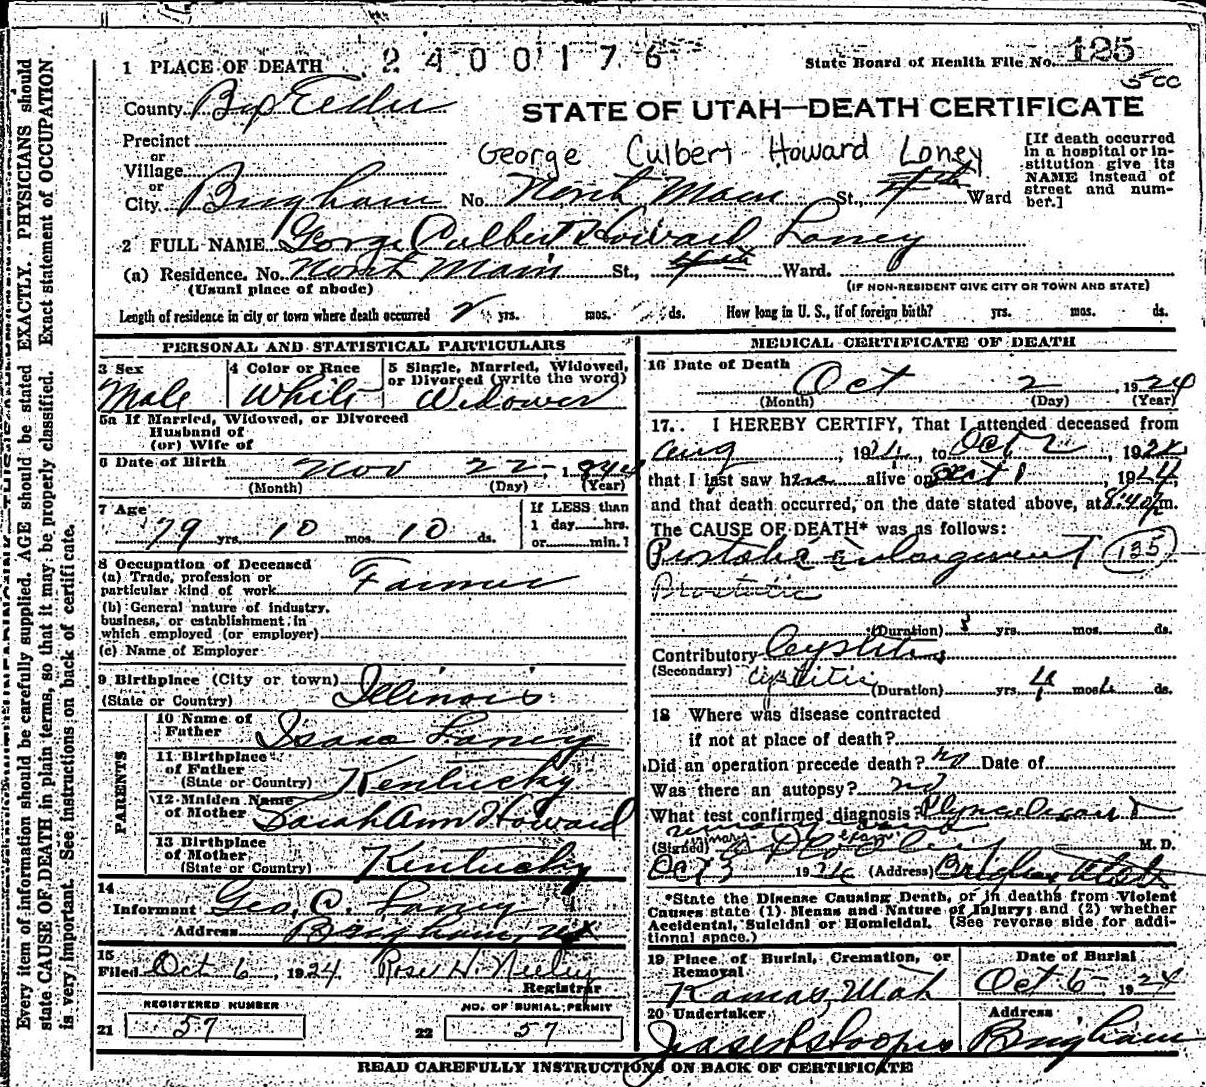 2400176
State Board of Health File No. 125
1 PLACE OF DEATH
County Box Elder
STATE OF UTAH—DEATH CERTIFICATE
Precinct
or
Village
or
City Brigham No. North Main St., 4th Ward
George Culbert Howard Loney
[If death occurred
in a hospital or in-
stitution give its
NAME instead of
street and num-
ber.]
2 FULL NAME George Culbert Howard Loney
(a) Residence. No. North Main St., 4th Ward.
(Usual place of abode)
(IF NON-RESIDENT GIVE CITY OR TOWN AND STATE)
Length of residence in city or town where death occurred yrs. mos. ds. How long in U. S., if of foreign birth? yrs. mos. ds.
PERSONAL AND STATISTICAL PARTICULARS
3 Sex
Male
4 Color or Race
White
5 Single, Married, Widowed,
or Divorced (write the word)
Widower
5a If Married, Widowed, or Divorced
Husband of
(or) Wife of
6 Date of Birth Nov 22 1844
(Month) (Day) (Year)
7 Age
79 yrs. 10 mos. 10 ds.
If LESS than
1 day hrs.
or min.
8 Occupation of Deceased
(a) Trade, profession or
particular kind of work Farmer
(b) General nature of industry,
business, or establishment in
which employed (or employer)
(c) Name of Employer
9 Birthplace (City or town)
(State or Country) Illinois
PARENTS
10 Name of
Father Isaac Loney
11 Birthplace
of Father
(State or Country) Kentucky
12 Maiden Name
of Mother Sarah Ann Howard
13 Birthplace
of Mother
(State or Country) Kentucky
14
Informant Geo. C. Loney
Address Brigham, Ut
15
Filed Oct 6, 1924 Rose W. Neeley
Registrar
REGISTERED NUMBER
21 57
NO. OF BURIAL PERMIT
22 57
MEDICAL CERTIFICATE OF DEATH
16 Date of Death
Oct 2 1924
(Month) (Day) (Year)
17. I HEREBY CERTIFY, That I attended deceased from
Aug, 1924, to Oct 2, 1924,
that I last saw him alive on Oct 1, 1924,
and that death occurred, on the date stated above, at 8:40 p m.
The CAUSE OF DEATH* was as follows:
Prostatic enlargement 135
Prostatic
(Duration) 3 yrs. mos. ds.
Contributory Cystitis
(Secondary) Cystitis
(Duration) yrs. 4 mos. ds.
18 Where was disease contracted
if not at place of death?
Did an operation precede death? no Date of
Was there an autopsy? no
What test confirmed diagnosis?
(Signed) M. D.
Oct 3 1924 (Address) Brigham, Utah
*State the Disease Causing Death, or in deaths from Violent
Causes state (1) Menas and Nature of Injury; and (2) whether
Accidental, Suicidal or Homicidal. (See reverse side for addi-
tional space.)
19 Place of Burial, Cremation, or
Removal
Kamas, Utah
Date of Burial
Oct 6 1924
20 Undertaker
Address
Brigham
READ CAREFULLY INSTRUCTIONS ON BACK OF CERTIFICATE
Every item of information should be carefully supplied. AGE should be stated EXACTLY. PHYSICIANS should
state CAUSE OF DEATH in plain terms, so that it may be properly classified. Exact statement of OCCUPATION
is very important. See instructions on back of certificate.